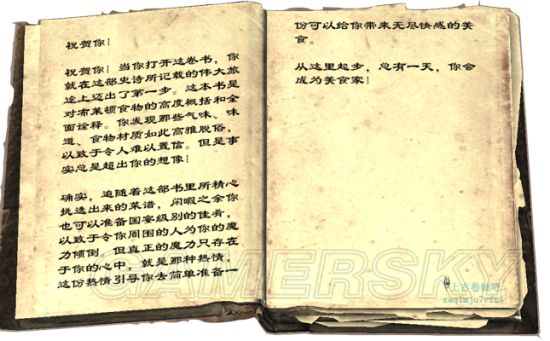 祝贺你！
祝贺你！当你打开这卷书，你
就在这部史诗所记载的伟大旅
途上迈出了第一步。这本书是
对布莱顿食物的高度概括和全
面诠释。你发现那些气味、味
道、食物材质如此高雅脱俗，
以致于令人难以置信。但是事
实总是超出你的想像！
确实，追随着这部书里所精心
挑选出来的菜谱，闲暇之余你
也可以准备国宴级别的佳肴，
以致于令你周围的人为你的魔
力倾倒。但真正的魔力只存在
于你的心中，就是那种热情，
这份热情引导你去简单准备一
份可以给你带来无尽快感的美
食。
从这里起步，总有一天，你会
成为美食家！
GAMERSKY
上古卷轴吧
zaqimju7vfr4